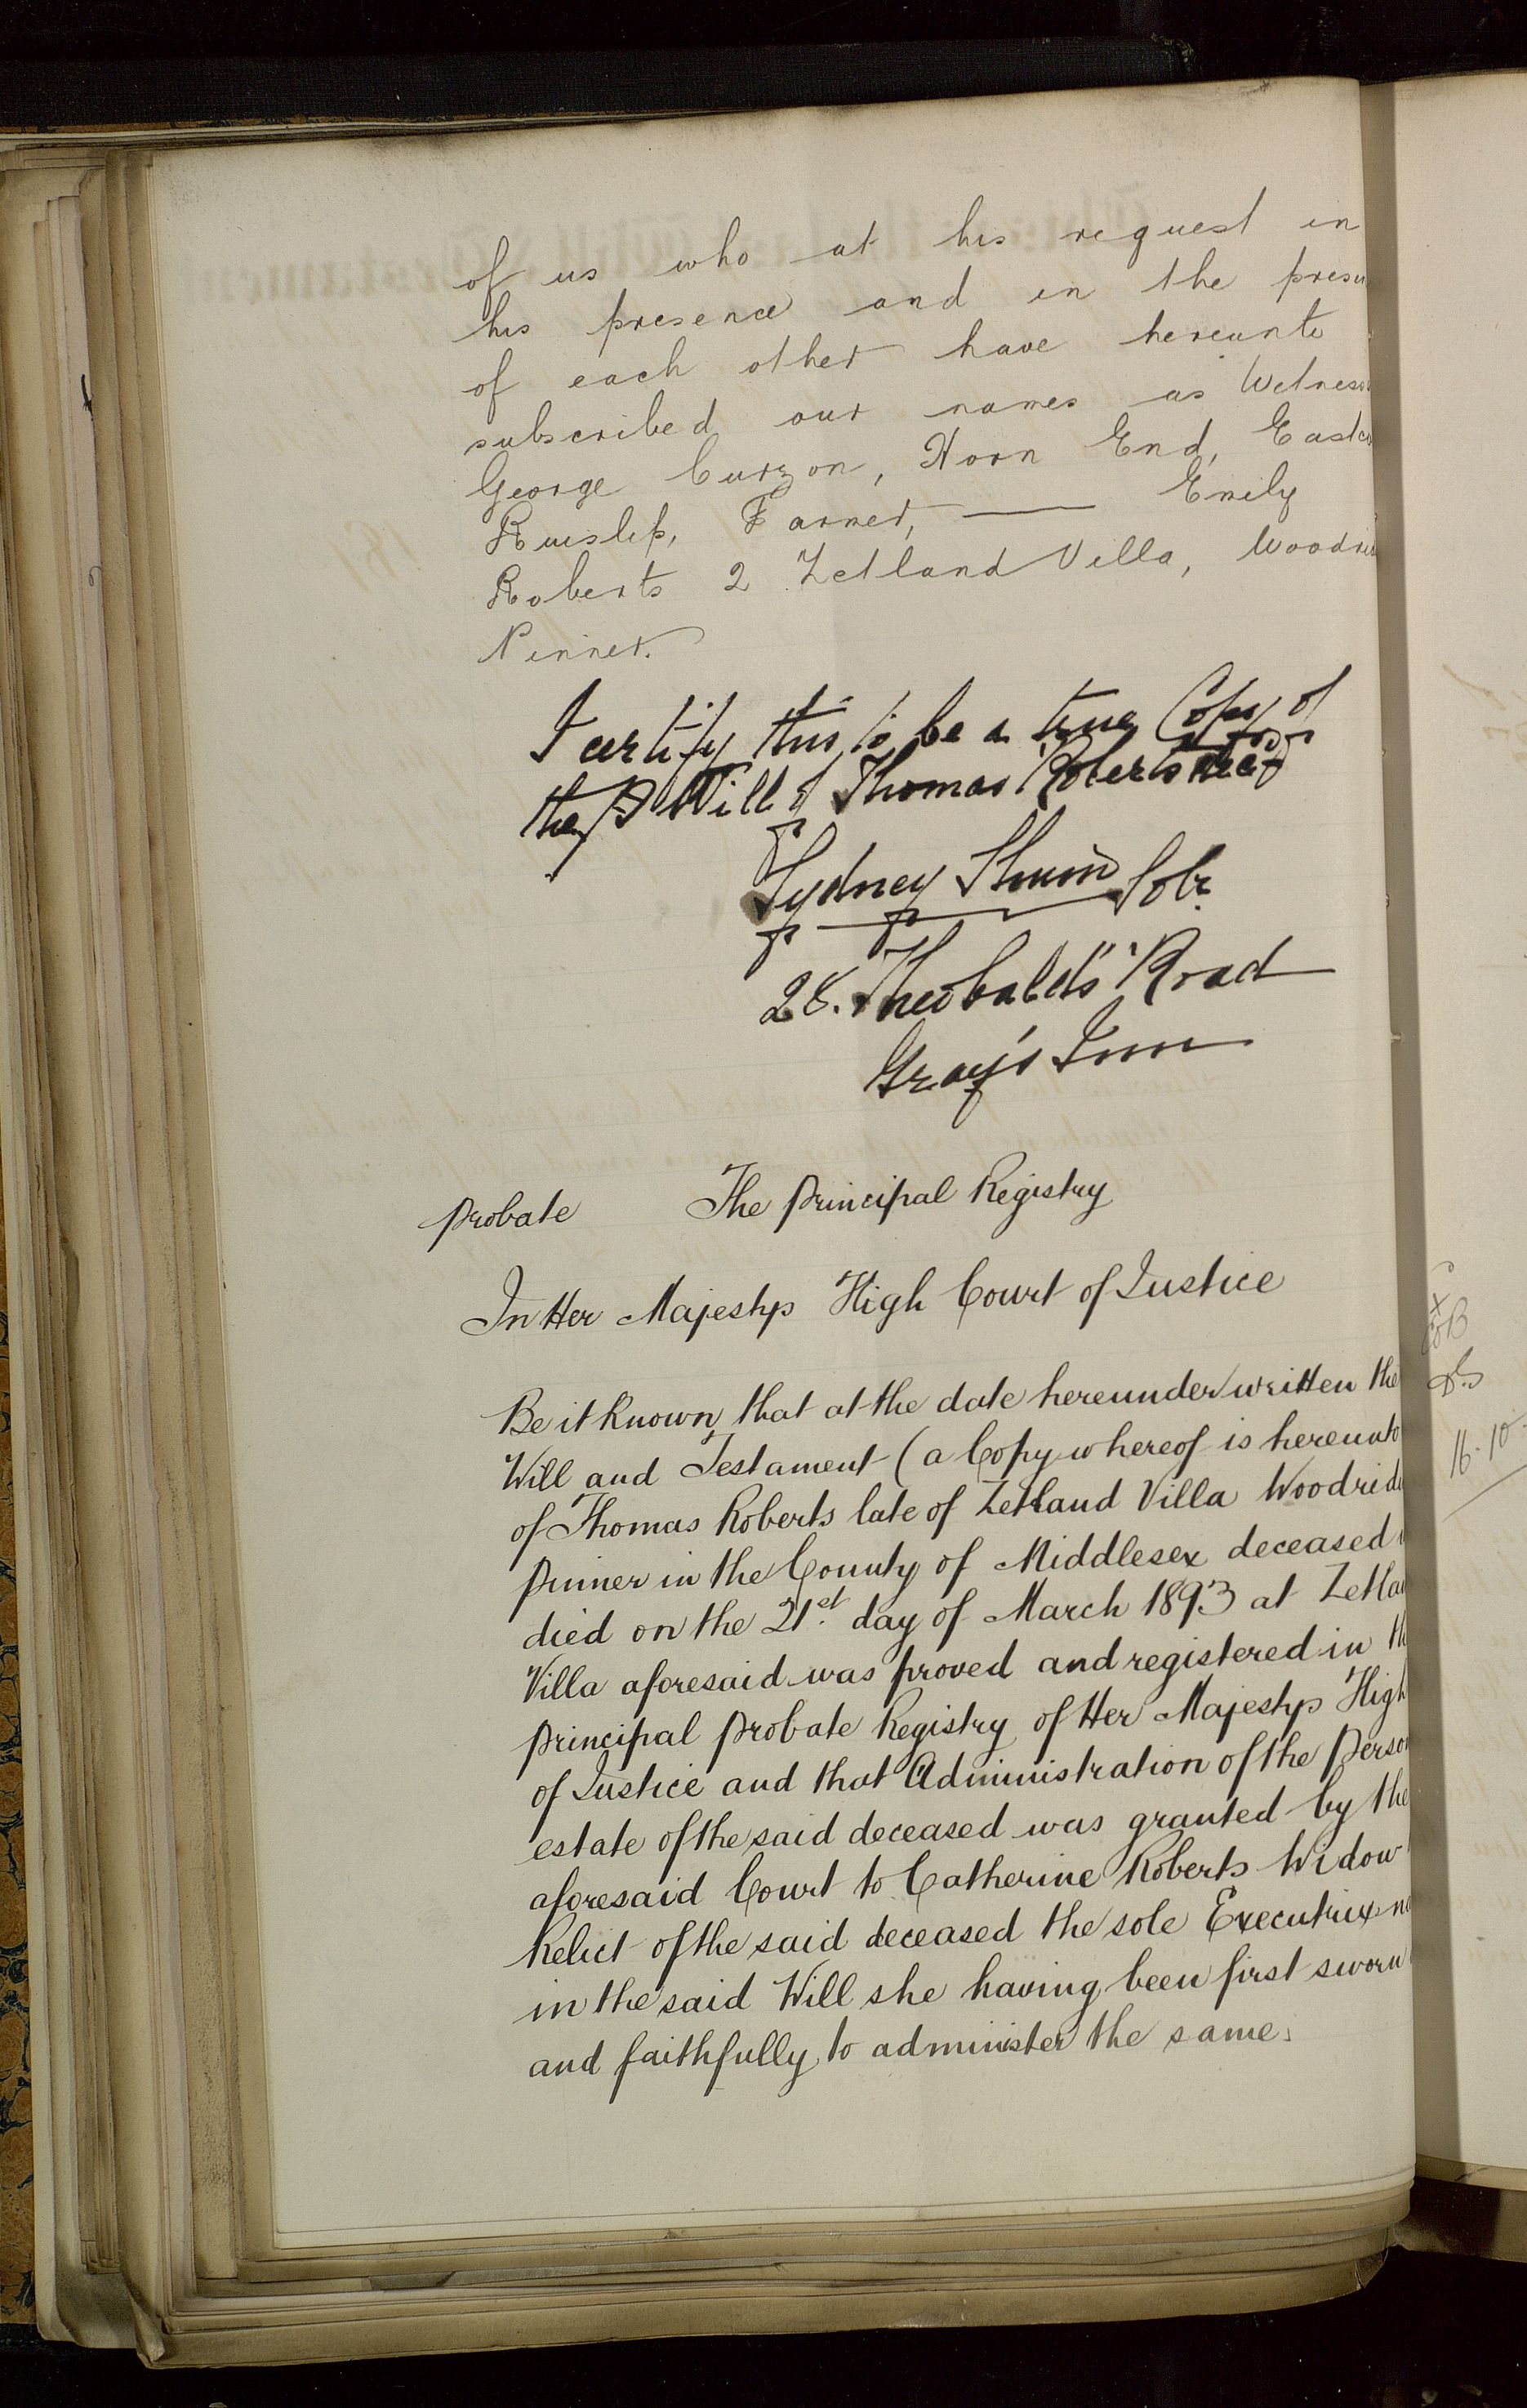 of us who at his request in
his presence and in the presen
of each other have hereunto
subscribed our names as Witness
George Curzon, Horn End, Eastco
Ruislip, Farmer, — Emily
Roberts 2 Zetland Villa, Woodri
Pinner.
I certify this to be a true Copy of
the Will of Thomas Roberts decd
Sydney Solr.
28. Theobald's Road
Gray's Inn
Probate The Principal Registry
In Her Majestys High Court of Justice
Be it Known that at the date hereunder written the
Will and Testament (a Copy whereof is hereunto
of Thomas Roberts late of Zetland Villa Woodrid
Pinner in the County of Middlesex deceased
died on the 21st. day of March 1893 at Zetla
Villa aforesaid was proved and registered in th
Principal Probate Registry of Her Majestys High
of Justice and that Administration of the Person
estate of the said deceased was granted by the
aforesaid Court to Catherine Roberts Widow
Relict of the said deceased the sole Executrix na
in the said Will she having been first sworn
and faithfully to administer the same.
16.10.